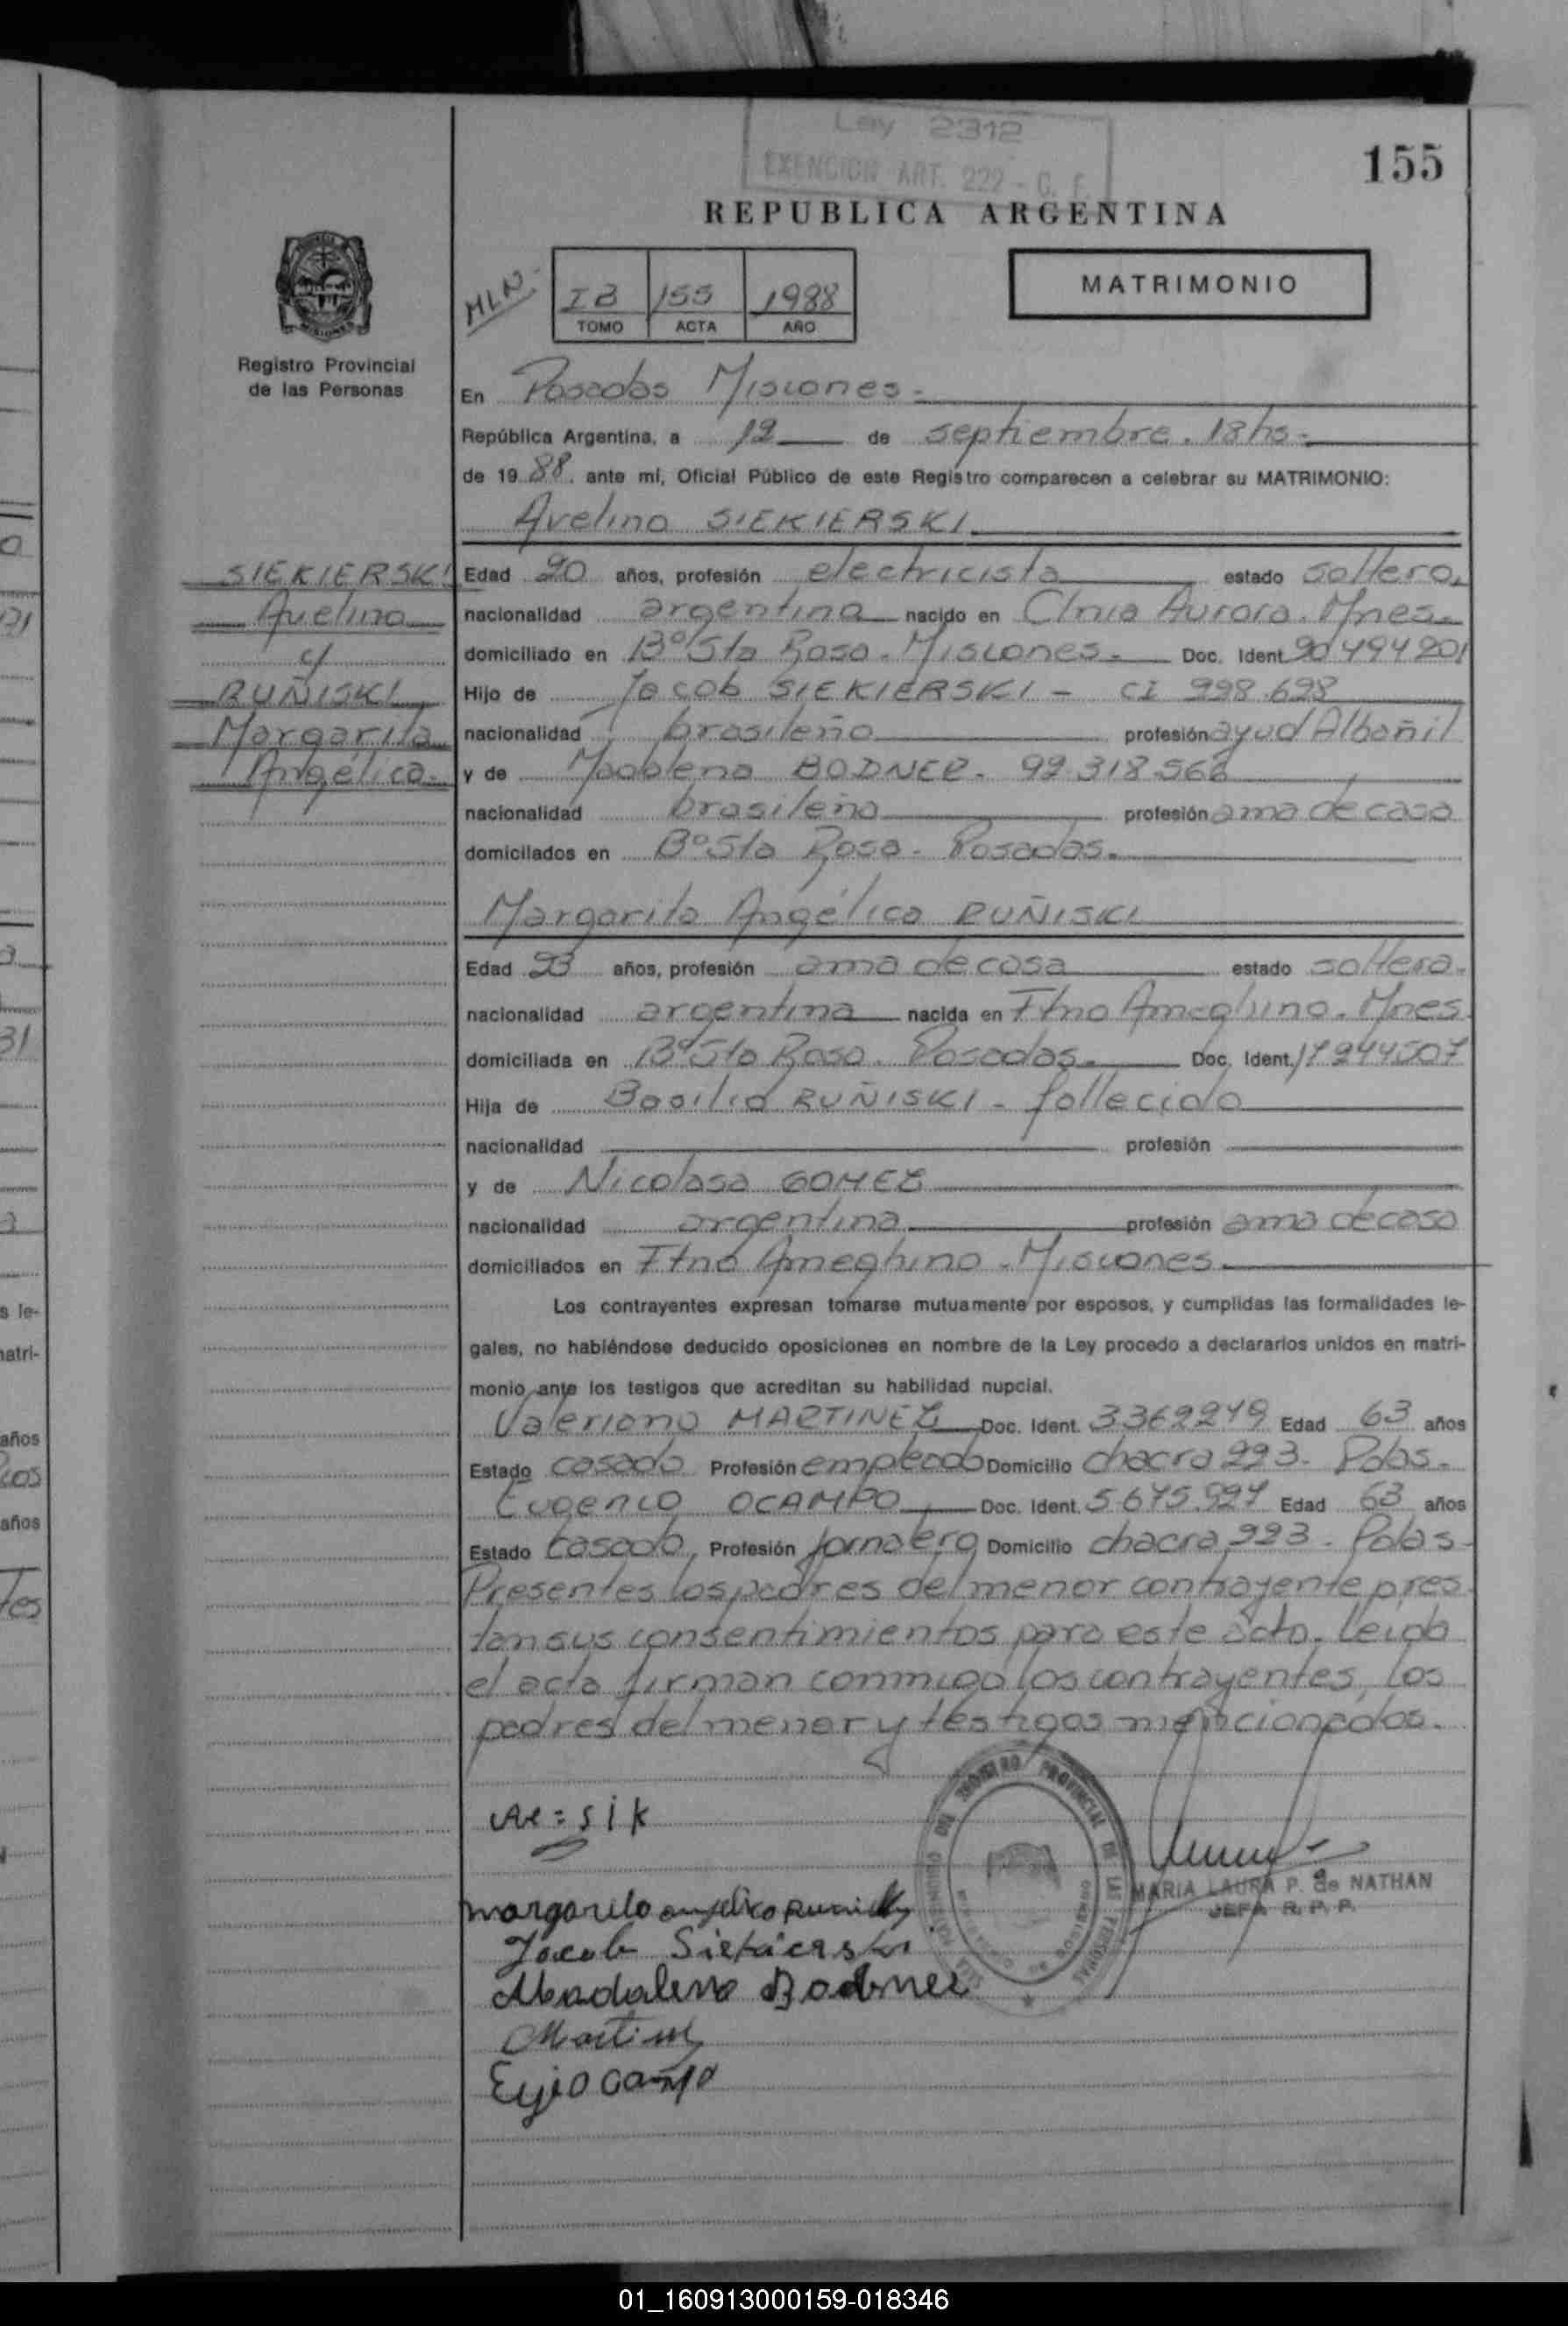 Ley 2312
EXENCION ART. 222 - C. F.
155
REPUBLICA ARGENTINA
MLN.
IB 155 1988
TOMO ACTA AÑO
MATRIMONIO
Registro Provincial
de las Personas
En Posadas Misiones.
República Argentina, a 12 de septiembre. 18hs.
de 19 88. ante mí, Oficial Público de este Registro comparecen a celebrar su MATRIMONIO:
Avelino SIEKIERSKI
SIEKIERSKI
Avelino
c/
RUÑISKI
Margarita
Angélica.
Edad 20 años, profesión electricista estado soltero.
nacionalidad argentina nacido en Clnia Aurora. Mnes.
domiciliado en Bº Sta Rosa. Misiones. Doc. Ident. 20494201
Hijo de Jacob SIEKIERSKI - CI 998.698
nacionalidad brasileña profesión ayud Albañil
y de Madalena BODNER. 92.318.566
nacionalidad brasileña profesión ama de casa
domicilados en Bº Sta Rosa. Posadas.
Margarita Angélica RUÑISKI
Edad 23 años, profesión ama de casa estado soltera.
nacionalidad argentina nacida en Ftno Ameghino. Mnes
domiciliada en Bº Sta Rosa. Posadas. Doc. Ident. 17244507
Hija de Basilio RUÑISKI - fallecido
nacionalidad profesión
y de Nicolasa GOMEZ
nacionalidad argentina profesión ama de casa
domiciliados en Ftno Ameghino. Misiones.
Los contrayentes expresan tomarse mutuamente por esposos, y cumplidas las formalidades le-
gales, no habiéndose deducido oposiciones en nombre de la Ley procedo a declararlos unidos en matri-
monio ante los testigos que acreditan su habilidad nupcial.
Valeriano MARTINEZ Doc. Ident. 3362249 Edad 63 años
Estado casado Profesión empleado Domicilio chacra 223. Pdas.
Eugenio OCAMPO Doc. Ident. 5.675.527 Edad 63 años
Estado casado, Profesión jornalero Domicilio chacra 223. Pdas
Presentes los padres del menor contrayente pres
tan sus consentimientos para este acto. Leida
el acta firman conmigo los contrayentes, los
padres del menor y testigos mencionados.
Ave = sik
MARIA LAURA P. de NATHAN
JEFA R. P. P.
REGISTRO PROVINCIAL DE LAS PERSONAS
margarita angelica Runiski
Jacob Siekierski
Madalena Bodner
Martinez
Egio Campo
01_160913000159-018346